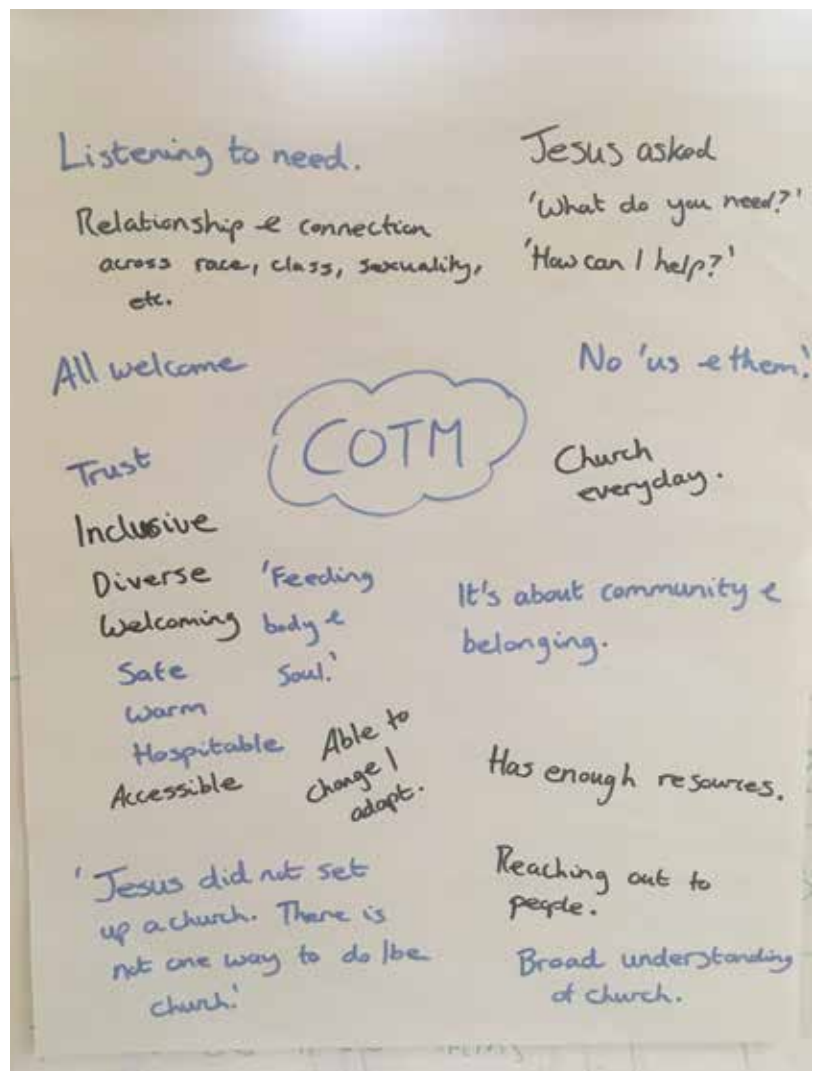 Listening to need.
Relationship & connection
across race, class, sexuality,
etc.
Jesus asked
'What do you need?'
'How can I help?'
All welcome
No 'us & them.'
COTM
Trust
Church
everyday.
Inclusive
Diverse
Welcoming
Safe
Warm
Hospitable
Accessible
'Feeding
body &
Soul.'
It's about community &
belonging.
Able to
change /
adapt.
Has enough resources.
'Jesus did not set
up a church. There is
not one way to do /be
church.'
Reaching out to
people.
Broad understanding
of church.